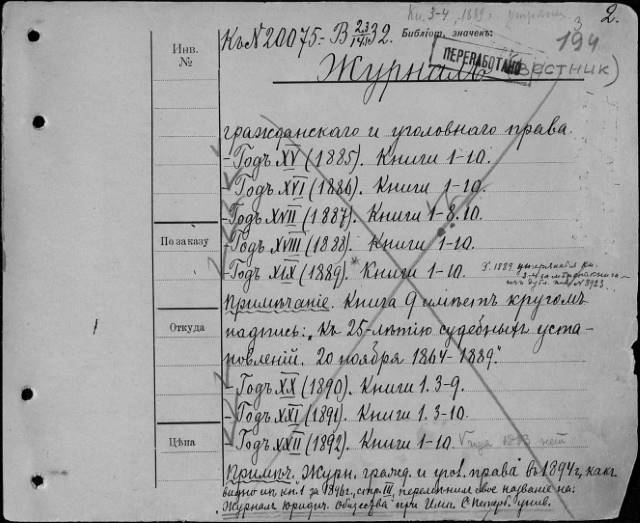 Кн. 3-4, 1889.
2.
Къ № 20075.- В 23/14 II 32.
Библіот. значекъ:
194
Инв. №
ПЕРЕРАБОТАНО
Журналъ (ВЕСТНИК)
гражданскаго и уголовнаго права.
- Годъ XV (1885). Книги 1-10.
- Годъ XVI (1886). Книги 1-10.
- Годъ XVII (1887). Книги 1-8.10.
По заказу
- Годъ XVIII (1888). Книги 1-10.
- Годъ XIX (1889).* Книги 1-10.
Примѣчаніе. Книга 9 имѣетъ кругомъ
Откуда
надпись: „Къ 25-лѣтію судебныхъ уста-
новленій. 20 ноября 1864-1889."
- Годъ XX (1890). Книги 1. 3-9.
- Годъ XXI (1891). Книги 1. 3-10.
Цѣна
- Годъ XXII (1892). Книги 1-10.
Примѣч. Журн. гражд. и угол. права въ 1894г, какъ
видно из кн. 1 за 1896г., стр. III, перемѣнилъ свое названіе на:
„Журналъ Юридич. Общества при Имп. С. Петерб. унив.